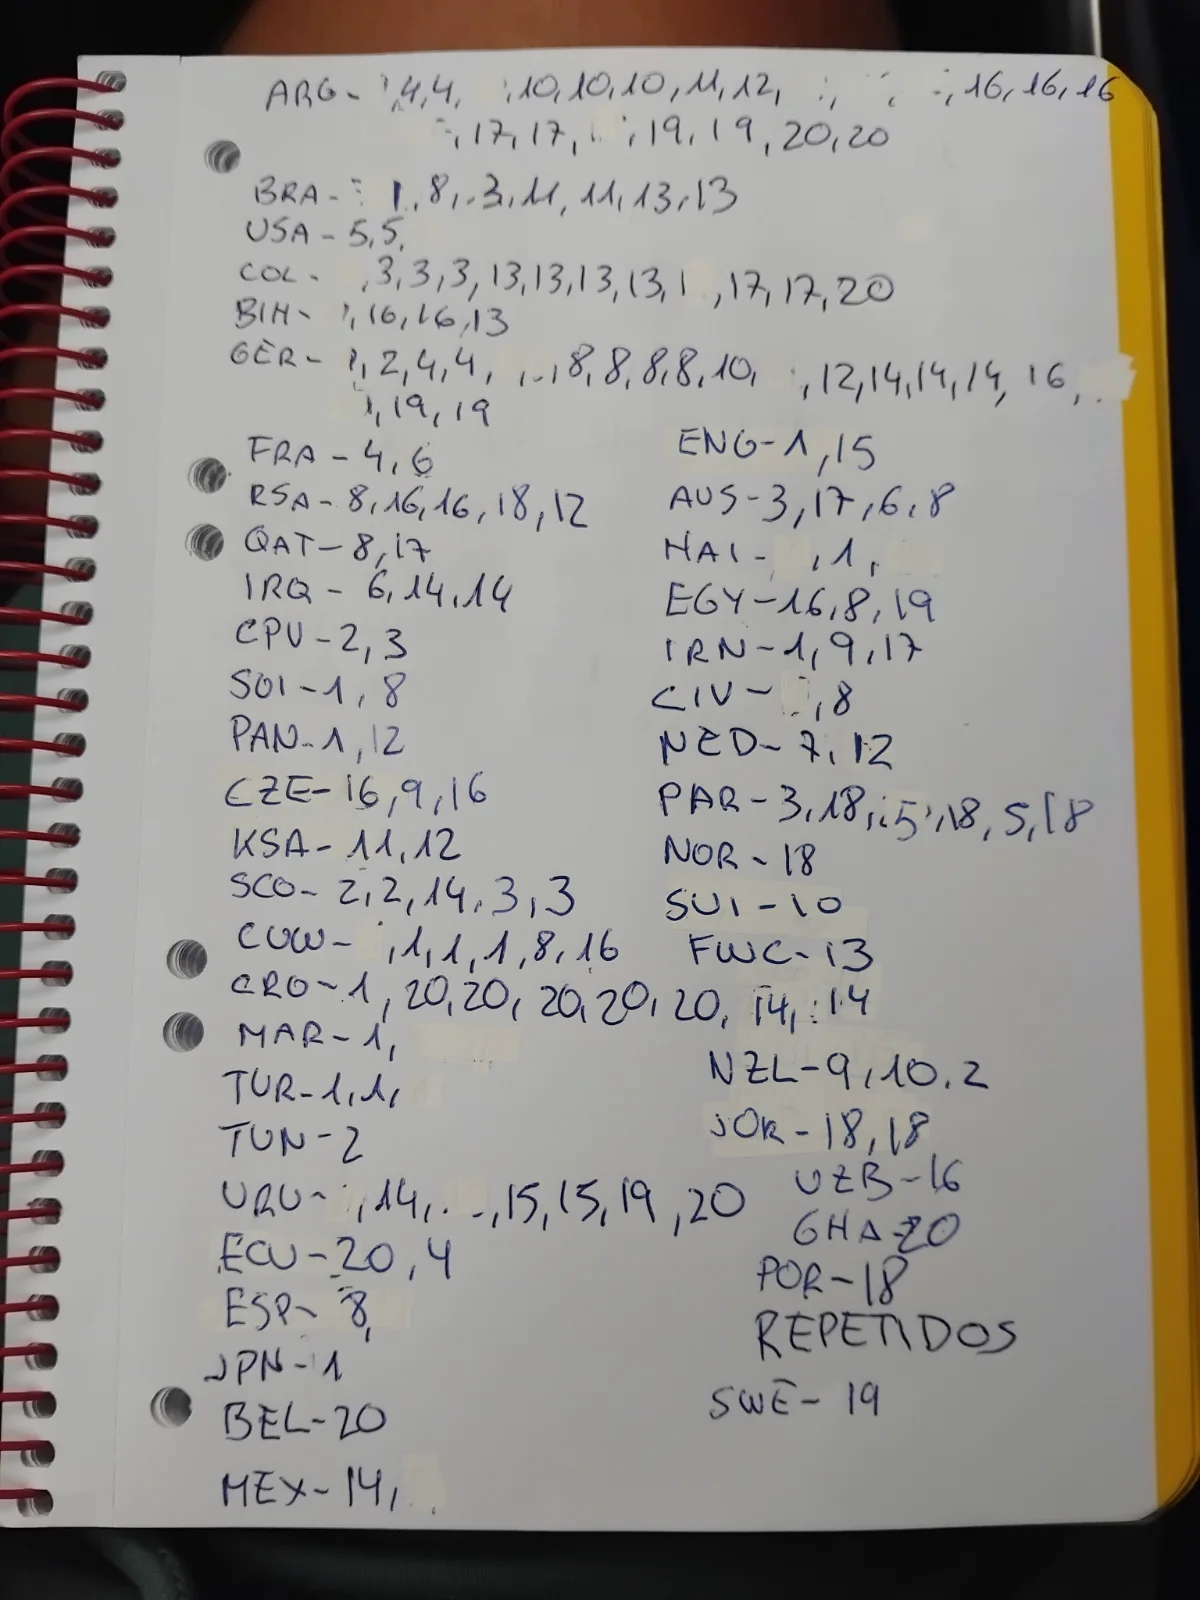 ARG- 4,4, 10,10,10,11,12, 16,16,16
17,17, 19,19,20,20
BRA- 1,8,3,11,11,13,13
USA-5,5,
COL- 3,3,3,13,13,13,13, 17,17,20
BIH- 16,16,13
GER- 2,4,4, 8,8,8,8,10, 12,14,14,14,16,
19,19
FRA-4,6
RSA-8,16,16,18,12
QAT-8,17
IRQ-6,14,14
CPV-2,3
SUI-1,8
PAN-1,12
CZE-16,9,16
KSA-11,12
SCO-2,2,14,3,3
CUW- ,1,1,1,8,16
CRO-1,20,20,20,20,20,14,14
MAR-1,
TUR-1,1,
TUN-2
URU- ,14, ,15,15,19,20
ECU-20,4
ESP-8,
JPN-1
BEL-20
MEX-14,
ENG-1,15
AUS-3,17,6,8
HAI- ,1,
EGY-16,8,19
IRN-1,9,17
CIV- ,8
NED-7,12
PAR-3,18,5,18,5,18
NOR-18
SUI-10
FWC-13
NZL-9,10.2
JOR-18,18
UZB-16
GHA-20
POR-18
REPETIDOS
SWE-19